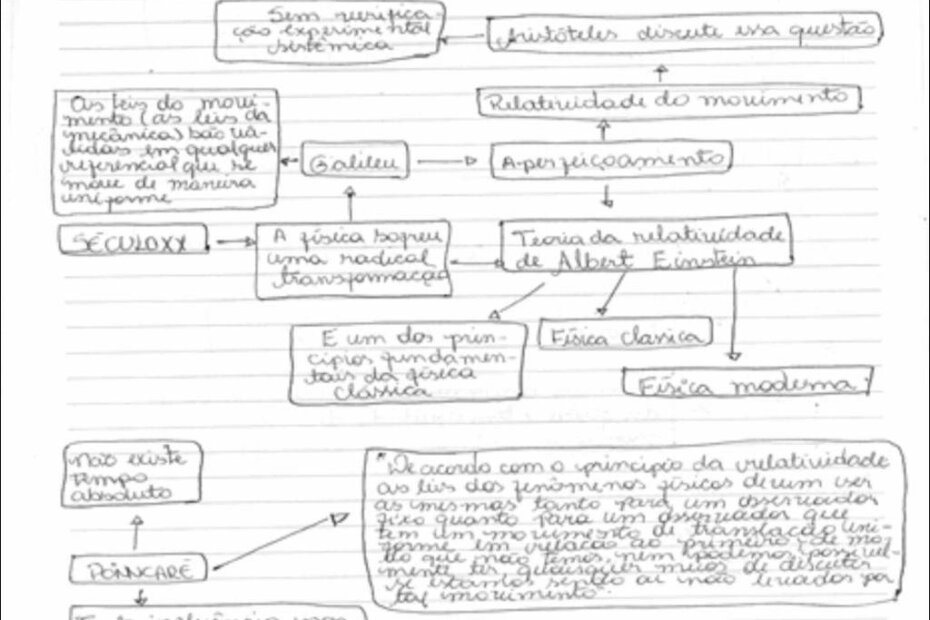 Sem verifica-
ção experimental
sistêmica
Aristóteles discute essa questão
Relatividade do movimento
As leis do movi-
mento (as leis da
mecânica) são vá-
lidas em qualquer
referencial que se
move de maneira
uniforme
Galileu
Aperfeiçoamento
SÉCULO XX
A física sofreu
uma radical
transformação
Teoria da relatividade
de Albert Einstein
E um dos prin-
cípios fundamen-
tais da física
clássica
Física classica
Física moderna
Não existe
tempo
absoluto
"De acordo com o principio da relatividade
as leis dos fenômenos físicos devem ser
as mesmas tanto para um observador
fixo quanto para um observador que
tem um movimento de translação uni-
forme em relação ao primeiro, de mo-
do que não temos, nem podemos possivel-
mente ter, quaisquer meios de discutir
se estamos sendo ou não levados por
tal movimento"
POINCARÉ